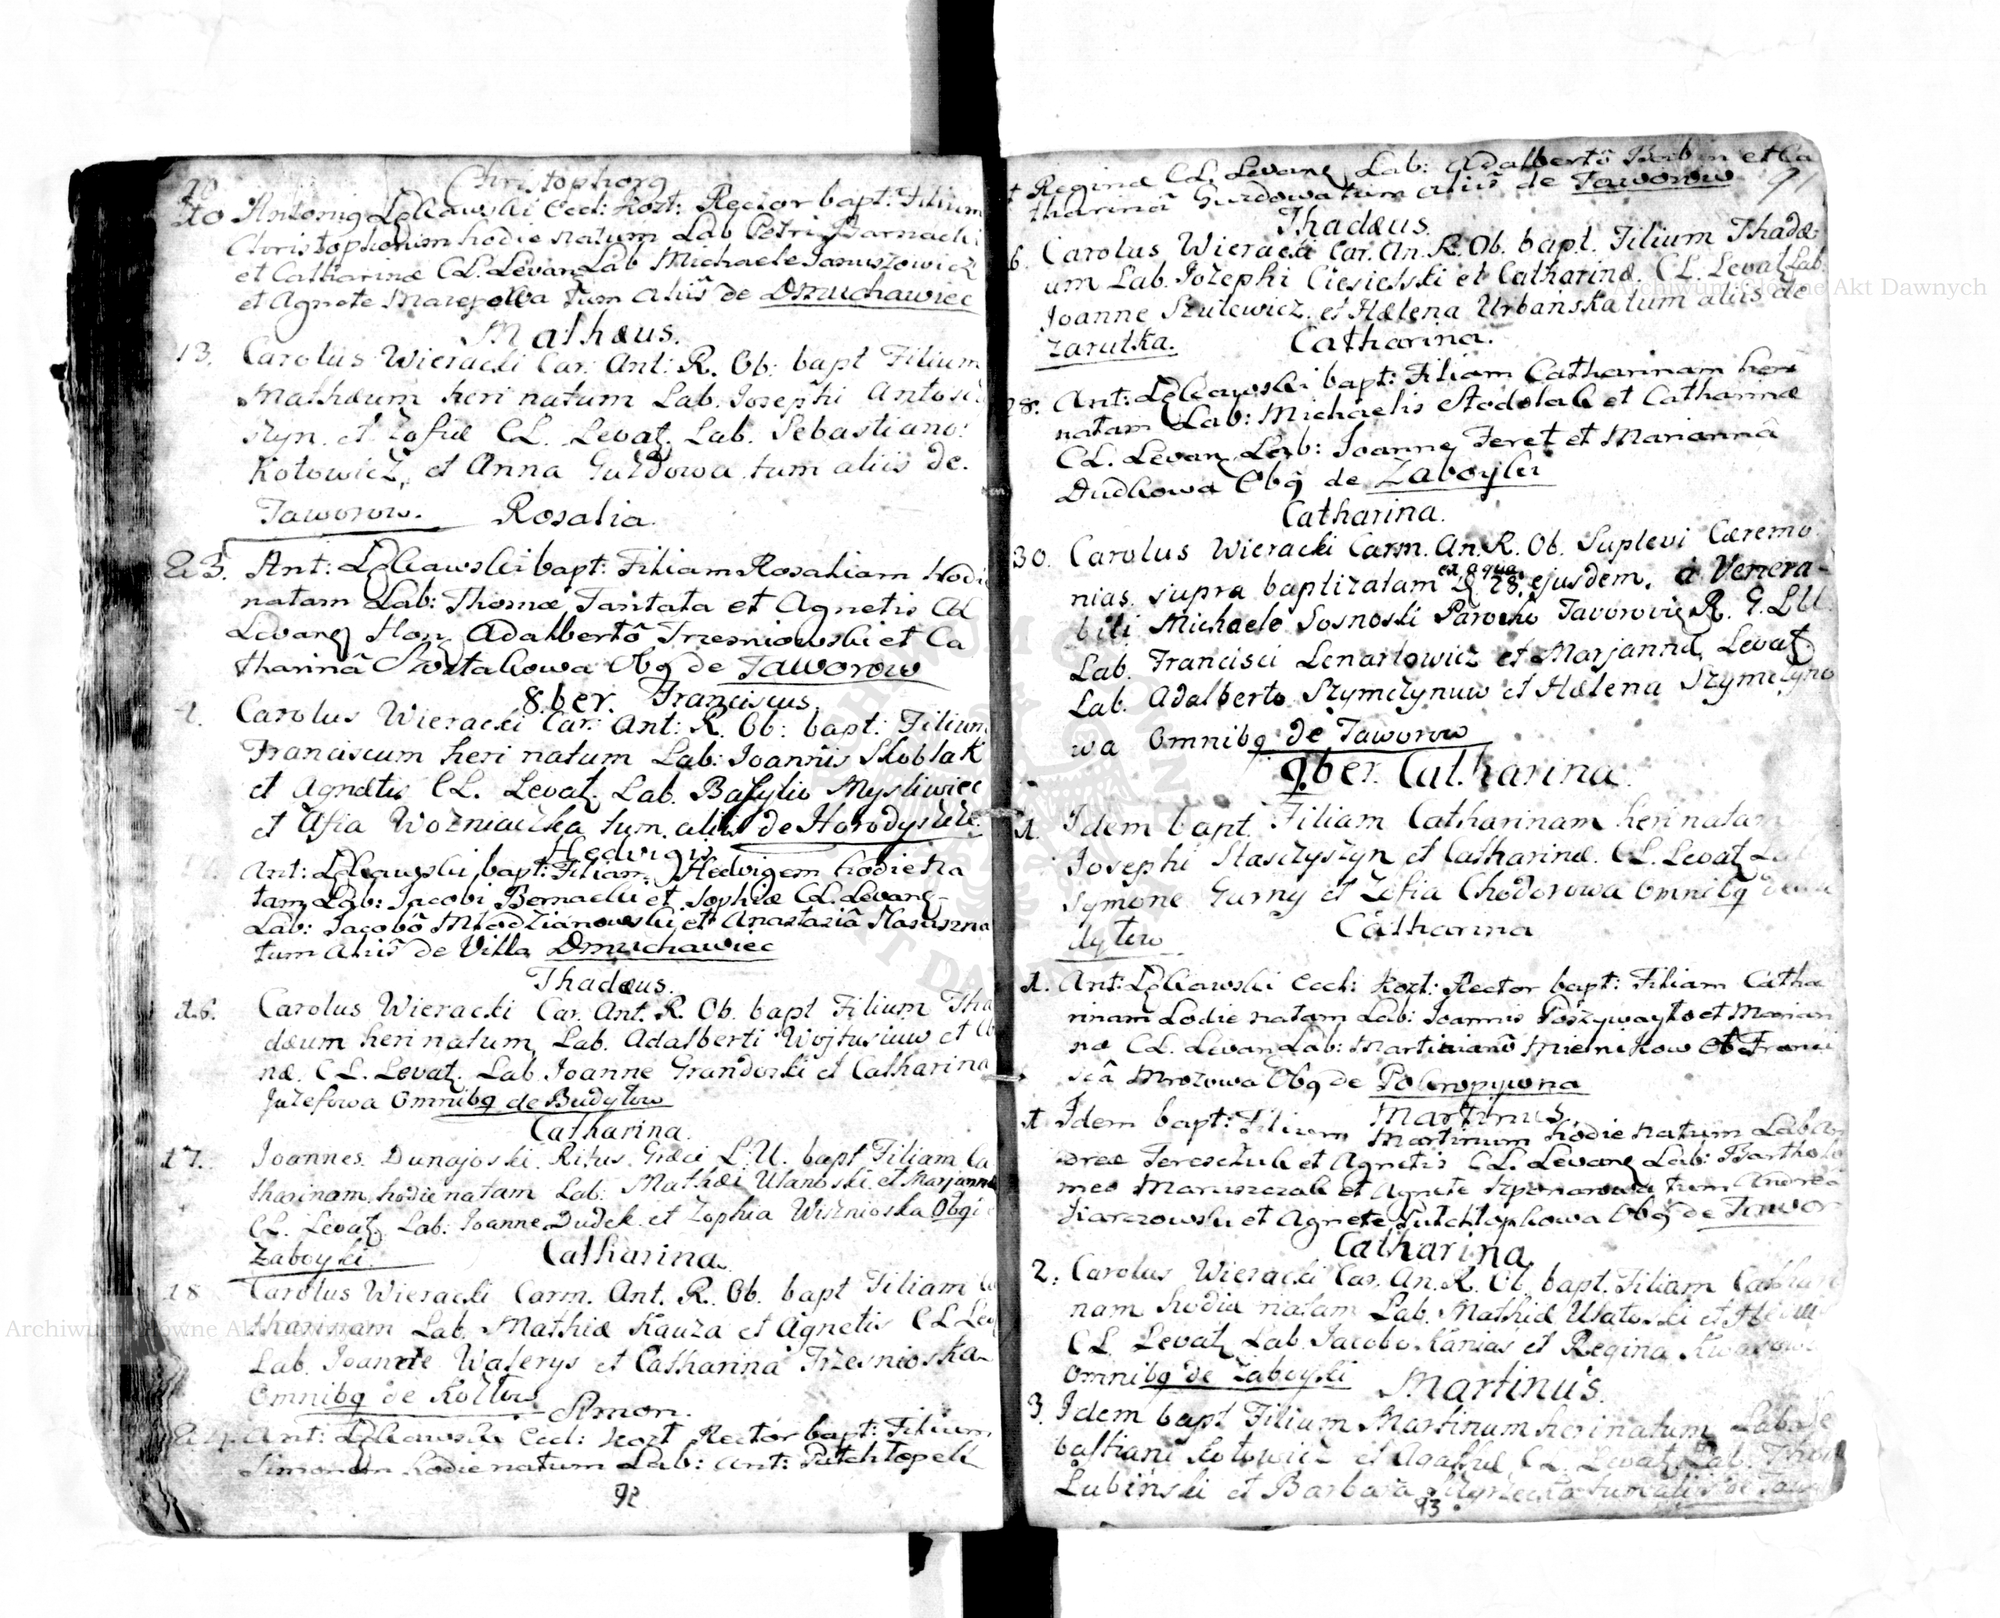 Christophorq
10 Antoniq Lękawski Eccl: Kozt: Rector bapt: Filium
Christophorum hodie natum Lab Petri Barnacki
et Catharinæ CL. Levanq Lab Michaele Januszowicz
et Agnete tum Aliis de Dmuchawiec
Mathæus.
13. Carolus Wieracki Car: Ant: R. Ob: bapt Filium
Mathæum heri natum Lab. Josephi Antosz
szyn. et Zofiæ CL. Levat. Lab. Sebastiano:
Kotowicz, et Anna Guzdowa tum aliis de.
Taworow. Rosalia.
23. Ant: Lękawski bapt: Filiam Rosaliam hodie
natam Lab: Thomæ Tantata et Agnetis CL
Levanq Hon Adalbertô Trzesniowski et Ca
tharinâ Szoztakowa Obq de Taworow
8.ber. Franciscus.
1. Carolus Wieracki Car: Ant: R. Ob: bapt: Filium
Franciscum heri natum Lab: Joannis Skoblak
et Agnetis CL. Levat. Lab. Basylio Mysliwiec
et Afia Wozniaczka tum. aliis de Horodyszcze.
Hedvigis
Ant: Lękawski bapt: Filiam Hedvigem hodie na
tam Lab: Jacobi Bernacki et Sophiæ CL. Levanq
Lab: Jacobô Mlodzianowski et Anastasiâ
tum Aliis de Villa Dmuchawiec
Thadæus.
16. Carolus Wieracki Car. Ant. R. Ob. bapt Filium Tha
dæum heri natum Lab. Adalberti Wojtusiuw et
næ. CL. Levat. Lab. Joanne Grandoski et Catharina
Juzefowa Omnibq de Budytow
Catharina.
17. Joannes Dunajoski Ritus Græci L: U. bapt Filiam Ca
tharinam hodie natam Lab. Mathæi Ulanoski et Marjannæ
CL. Levat Lab: Joanne Dudek et Zophia Wiznioska Obqi
Zaboyki. Catharina.
18 Carolus Wieracki Carm. Ant. R. Ob. bapt Filiam Ca
tharinam Lab. Mathiæ Kauza et Agnetis CL Lev
Lab. Joanne Walerys et Catharina Trzesnioska
Omnibq de Kozlow
Simon.
24. Ant: Lękawski Eccl: Kozt Rector bapt: Filium
Simonem hodie natum Lab: Ant: Putchlopek
92
et Reginæ CL. Levanq Lab: Adalbertô et Ca
tharinâ Guzdowa tum aliis de Taworow 91
Thadæus.
6. Carolus Wieracki Car. An. R. Ob. bapt. Filium Thadæ
um Lab. Jozephi Ciesielski et Catharinæ CL. Levat Lab.
Joanne Szulewicz, et Hælena Urbańska tum aliis de
Zarutka. Catharina.
28. Ant: Lękawski bapt: Filiam Catharinam heri
natam Lab: Michaelis Stodolak et Catharinæ
CL. Levanq Lab: Joanne Feret et Mariannâ
Dudkowa Obq de Zaboyki
Catharina.
30. Carolus Wieracki Carm. An. R. Ob. Suplevi Cæremo
nias supra baptizatam ex aqua 28. ejusdem. à Venera-
bili Michaele Sosnoski Parocho Tavorovien R. G. L U.
Lab. Francisci Lenartowicz et Marjannæ, Levat.
Lab. Adalberto Szymczynuw et Hælena Szymczyno
wa Omnibq de Taworow
9.ber. Catharina.
1. Idem bapt. Filiam Catharinam heri natam
Josephi Stasczyszyn et Catharinæ. CL. Levat Lab
Symone Gurny et Zofia Chodorowa Omnibq de
dytow
Catharina
1. Ant: Lękawski Eccl: Kozt: Rector bapt: Filiam Catha
rinam hodie natam Lab: Joannis Poszywayko et Marian
næ CL. Levanq Lab: Martinianô Mielnikow et Franci
scâ Mrozowa Obq de Pokropywna
Martinus.
1 Idem bapt: Filium Martinum hodie natum Lab An
dreæ Fereszczuk et Agnetis CL. Levanq Lab: Bartholo
meo Maruszczak et Agnete tum Andreâ
et Agnete Putchlopkowa Obq de Tawor
Catharina
2. Carolus Wieracki Car. An. R. Ob. bapt. Filiam Cathari
nam hodie natam Lab. Mathiæ Ulatoski et
CL. Levat Lab. Jacobo Kanias et Regina
Omnibq de Zaboyki Martinus.
3. Idem bapt Filium Martinum heri natum Lab. Se
bastiani Kotowicz et Agathæ CL. Levat Lab. Thom
Lubinski et Barbara tum aliis de Taw
93
Archiwum Główne Akt Dawnych